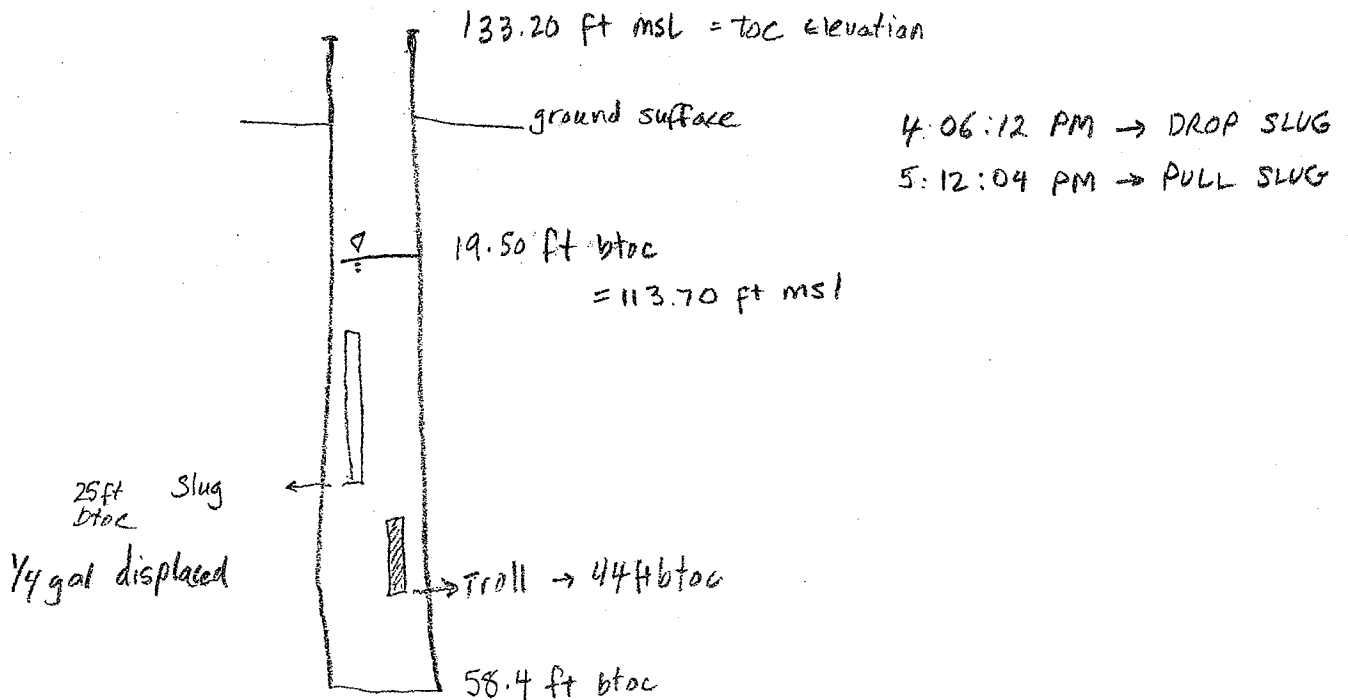 133.20 ft msl = toc elevation
ground surface
4:06:12 PM → DROP SLUG
5:12:04 PM → PULL SLUG
19.50 ft btoc
= 113.70 ft msl
25ft Slug
btoc
1/4 gal displaced
Troll → 44ft btoc
58.4 ft btoc